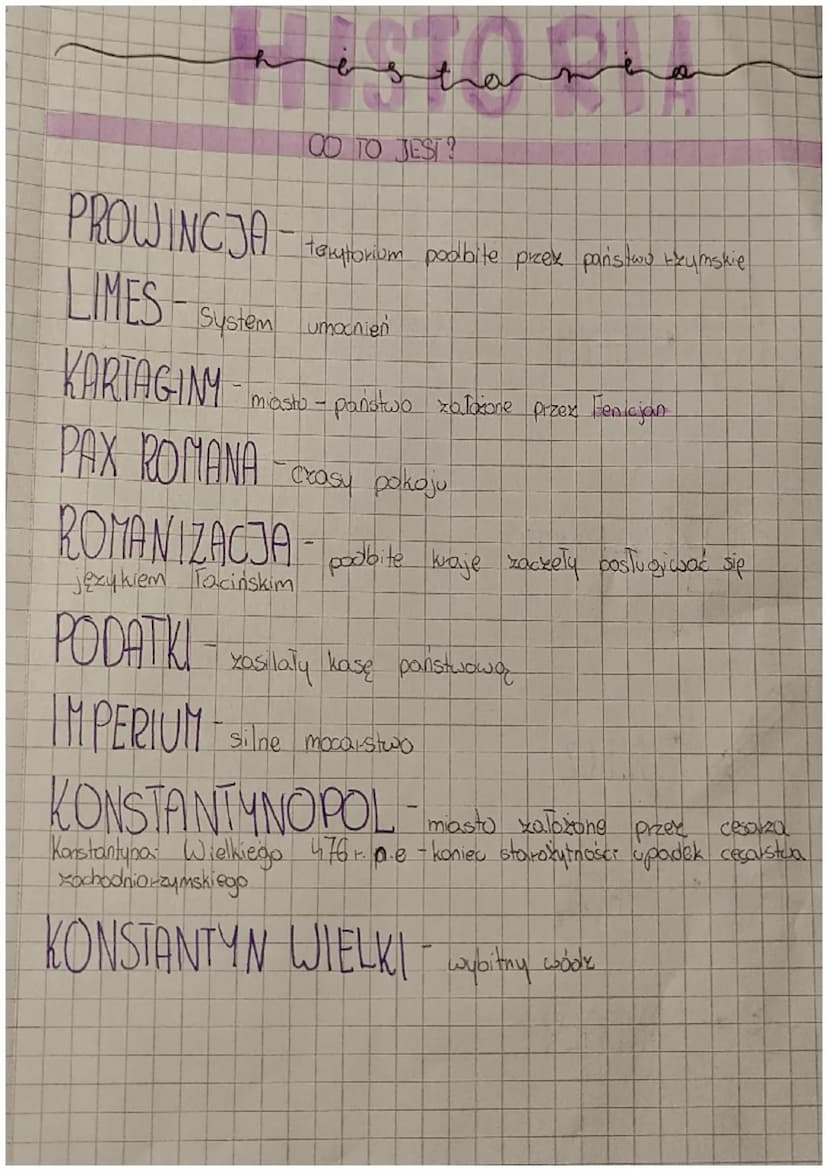 HISTORIA
historia
CO TO JEST?
PROWINCJA - terytorium podbite przez państwo rzymskie
LIMES - System umocnień
KARTAGINY - miasto - państwo założone przez Fenicjan
PAX ROMANA - czasy pokoju
ROMANIZACJA - podbite kraje zaczeły posługiwać się
językiem łacińskim
PODATKI - zasilały kasę państwową
IMPERIUM - silne mocarstwo
KONSTANTYNOPOL - miasto założone przez cesarza
Konstantyna Wielkiego 476 r. p.e - koniec starożytności upadek cesarstwa
zachodniorzymskiego
KONSTANTYN WIELKI - wybitny wódz